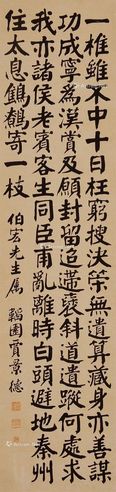 一椎雖不中十日枉窮搜決策無遺算藏身亦善謀
功成寧為漢賞及願封留追蹤褒斜道遺蹤何處求
我亦諸侯老賓客生同臣甫亂離時白頭避地秦州
住太息鷦鷯寄一枝
伯宏先生屬 韜園賈景德